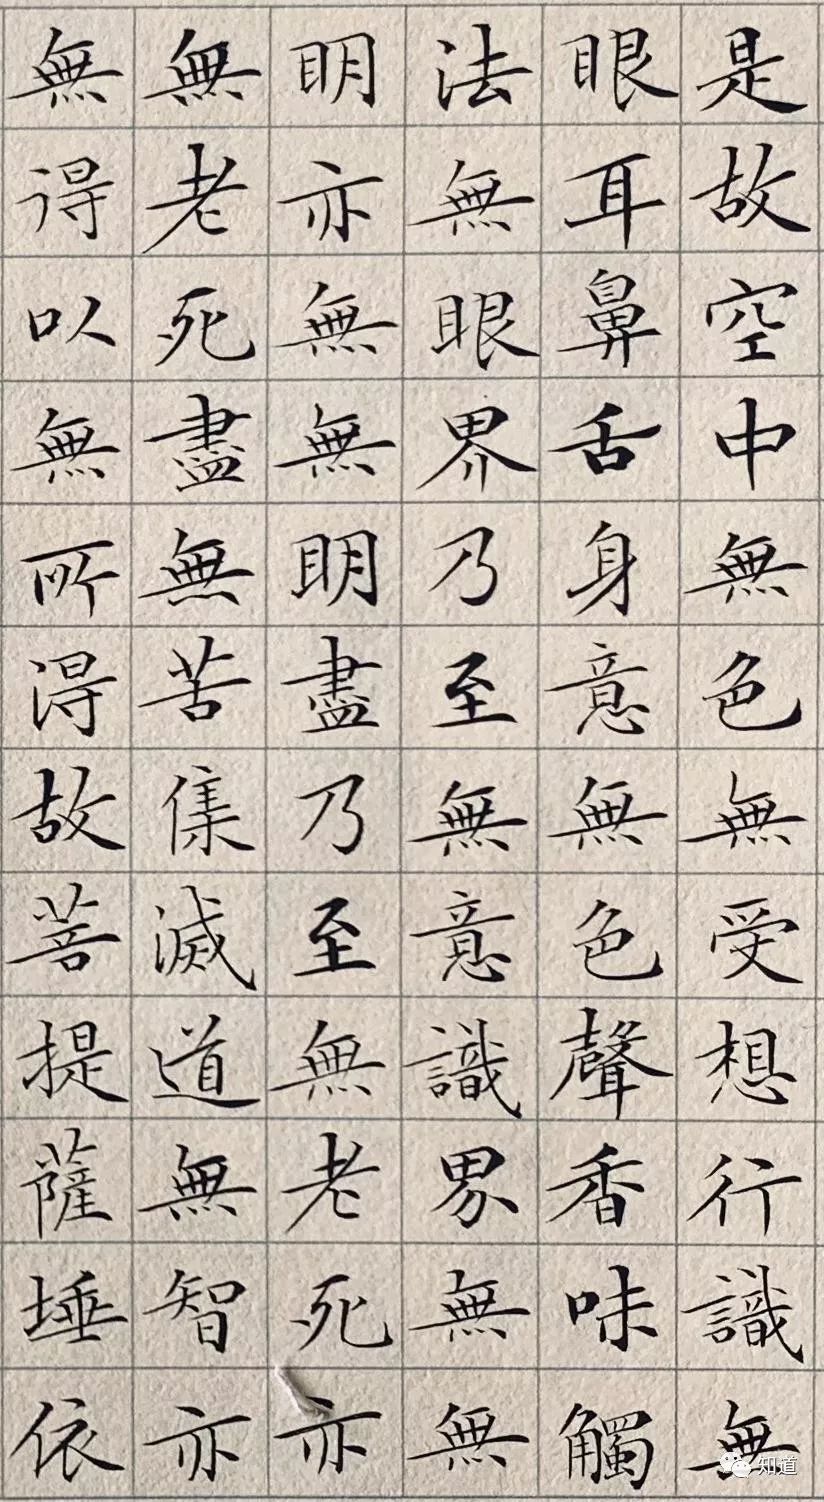 是故空中無色無受想行識無
眼耳鼻舌身意無色聲香味觸
法無眼界乃至無意識界無無
明亦無無明盡乃至無老死亦
無老死盡無苦集滅道無智亦
無得以無所得故菩提薩埵依
知道